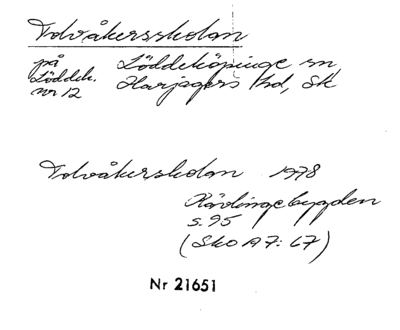 Tolvåkersskolan
på Löddeköpinge sn,
Löddek. Harjagers hd, Sk
nr 12
Tolvåkerskolan 1978
Kävlingebygden
s. 95
(Sko A7: 67)
Nr 21651